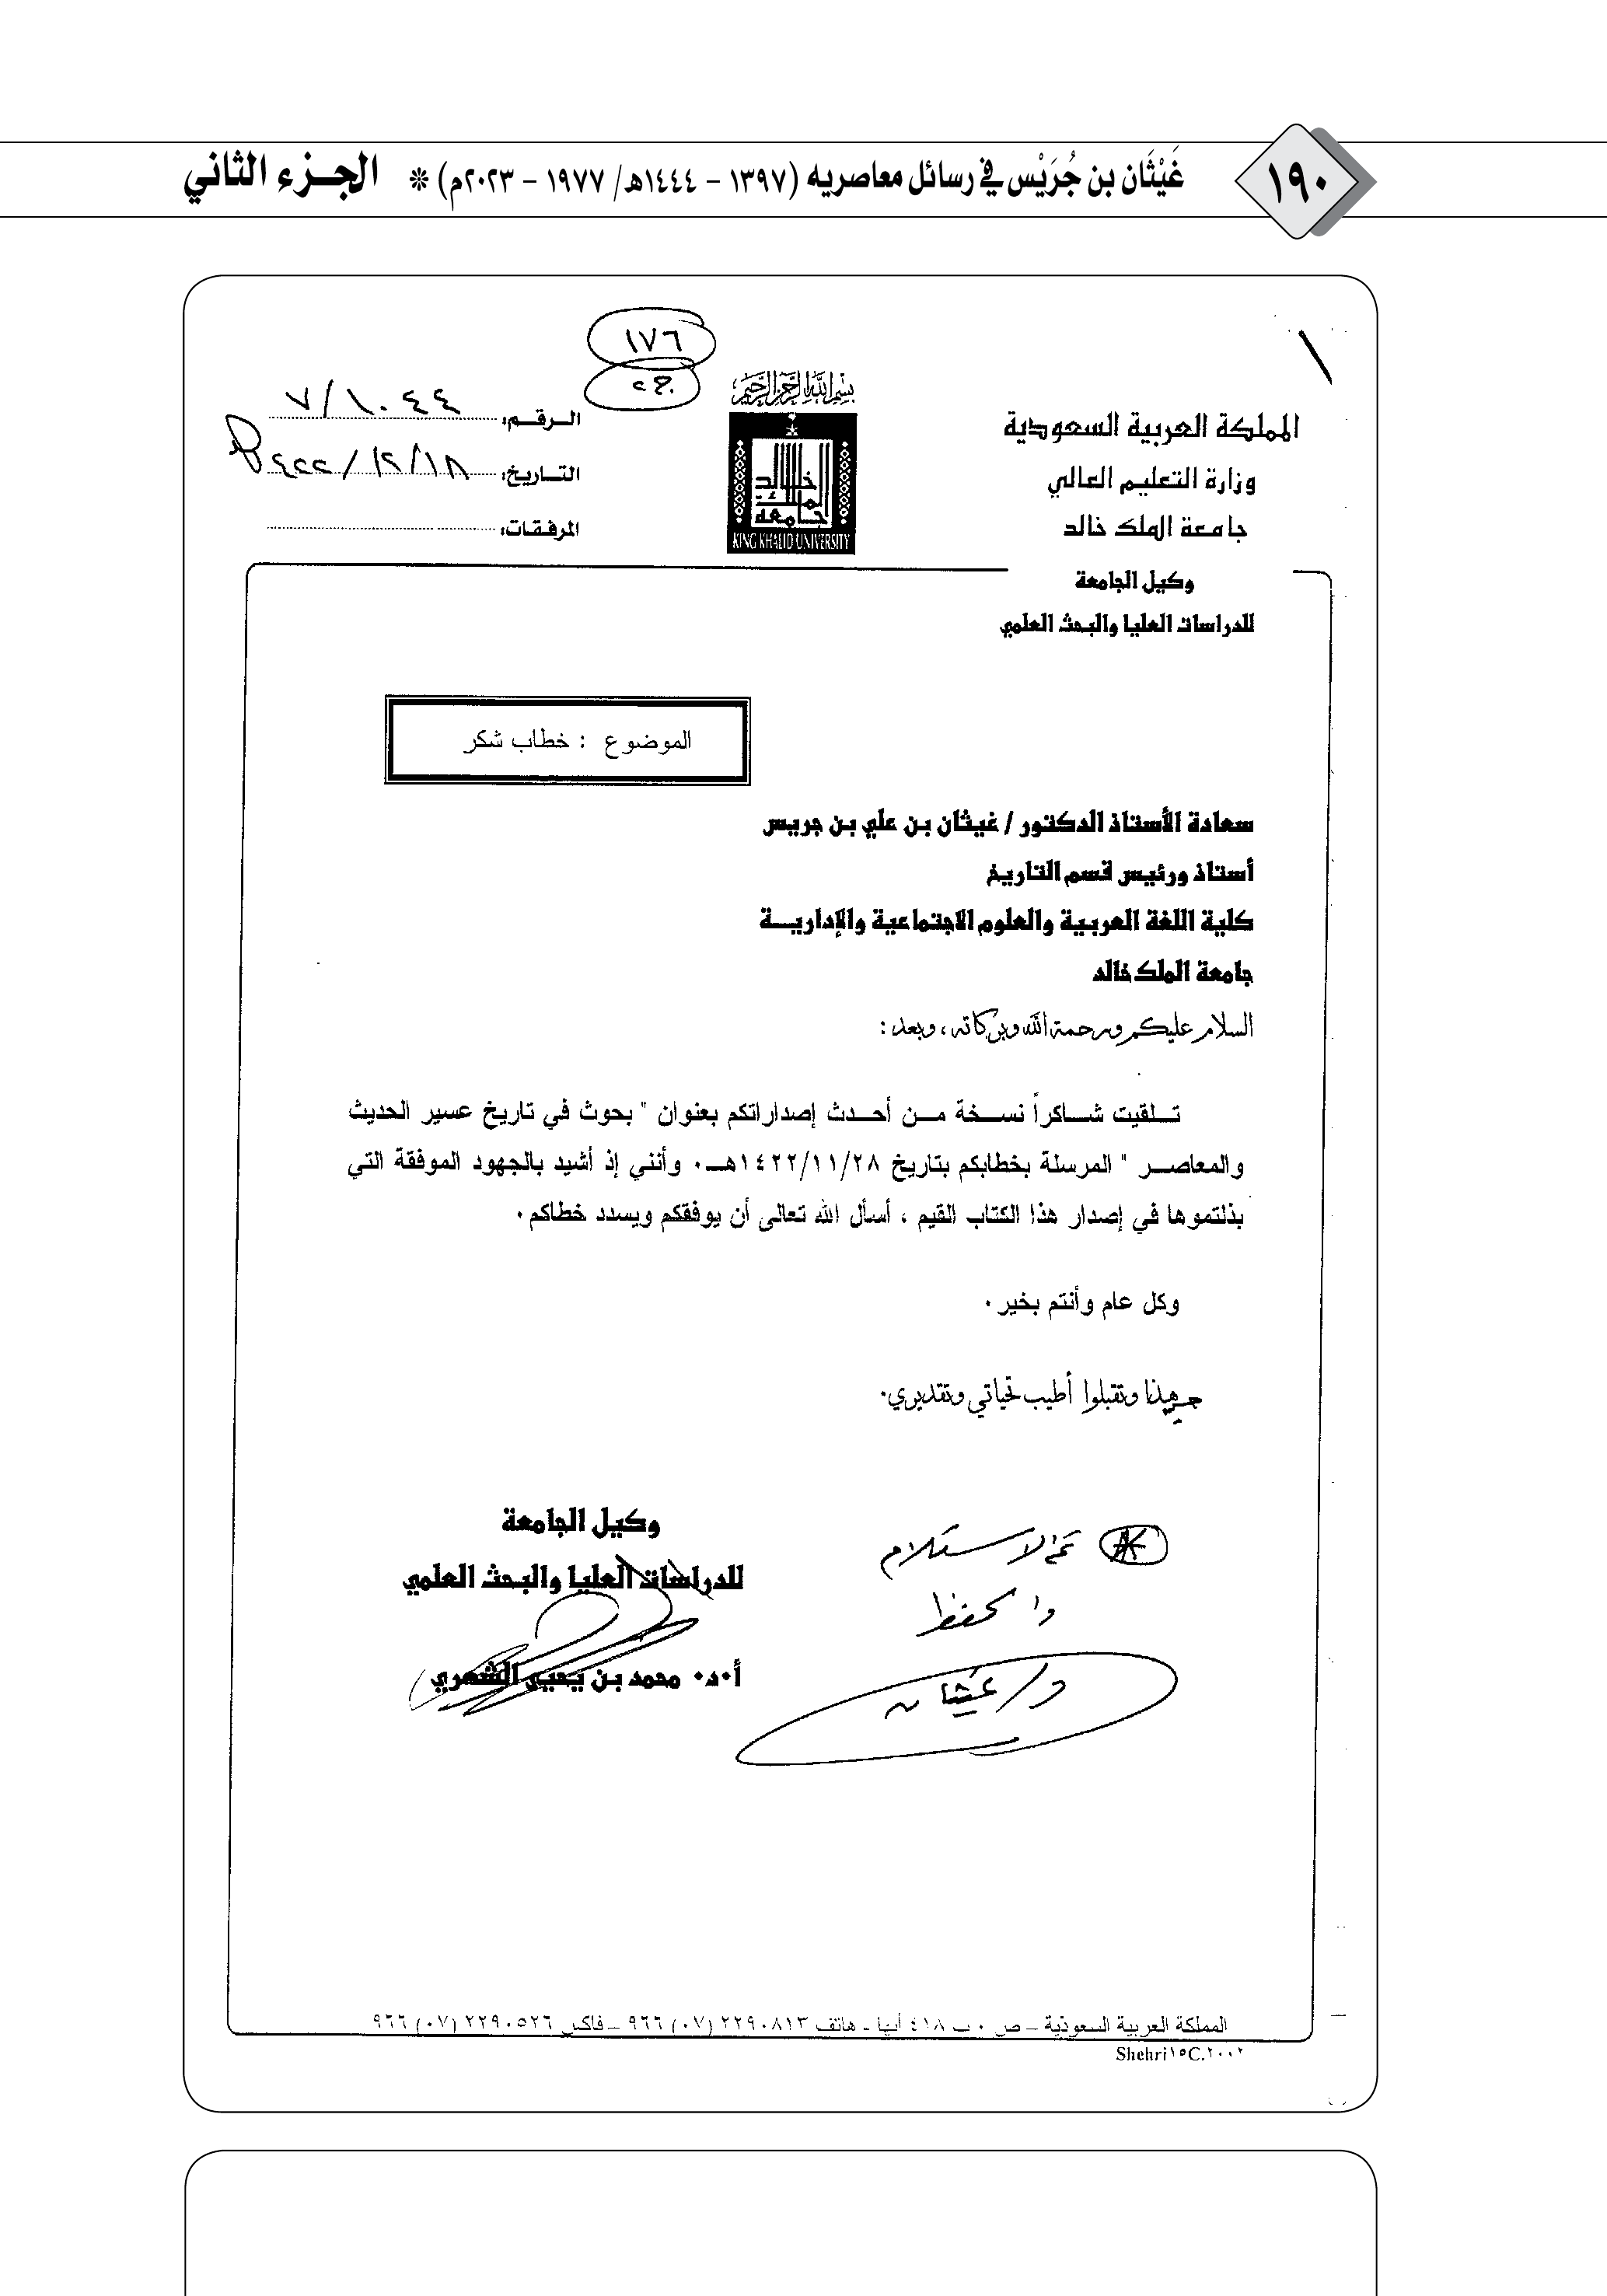 ١٩٠
غَيْثَان بن جُرَيْس في رسائل معاصريه (١٣٩٧ - ١٤٤٤هـ/ ١٩٧٧ - ٢٠٢٣م) * الجزء الثاني
١٧٦
ج٢
بسم الله الرحمن الرحيم
المملكة العربية السعودية
وزارة التعليم العالي
جامعة الملك خالد
وكيل الجامعة
للدراسات العليا والبحث العلمي
جامعة الملك خالد
KING KHALID UNIVERSITY
الرقم: ٧/١٠٤٤
التاريخ: ١٤٢٢/١٢/١٨هـ
المرفقات:
الموضوع : خطاب شكر
سعادة الأستاذ الدكتور / غيثان بن علي بن جريس
أستاذ ورئيس قسم التاريخ
كلية اللغة العربية والعلوم الاجتماعية والإدارية
جامعة الملك خالد
السلام عليكم ورحمة الله وبركاته ، وبعد :
تلقيت شاكراً نسخة من أحدث إصداراتكم بعنوان " بحوث في تاريخ عسير الحديث
والمعاصر " المرسلة بخطابكم بتاريخ ١٤٢٢/١١/٢٨هـ٠ وأنني إذ أشيد بالجهود الموفقة التي
بذلتموها في إصدار هذا الكتاب القيم ، أسأل الله تعالى أن يوفقكم ويسدد خطاكم٠
وكل عام وأنتم بخير٠
هذا وتقبلوا أطيب تحياتي وتقديري٠
وكيل الجامعة
للدراسات العليا والبحث العلمي
أ٠د٠ محمد بن يحيى الشهري
* تم الاستلام
والحفظ
د/ غيثان
المملكة العربية السعودية – ص ٠ ب ٤١٨ أبها - هاتف ٢٢٩٠٨١٣ (٠٧) ٩٦٦ – فاكس ٢٢٩٠٥٢٦ (٠٧) ٩٦٦
Shehri١٥C.٢٠٠٢